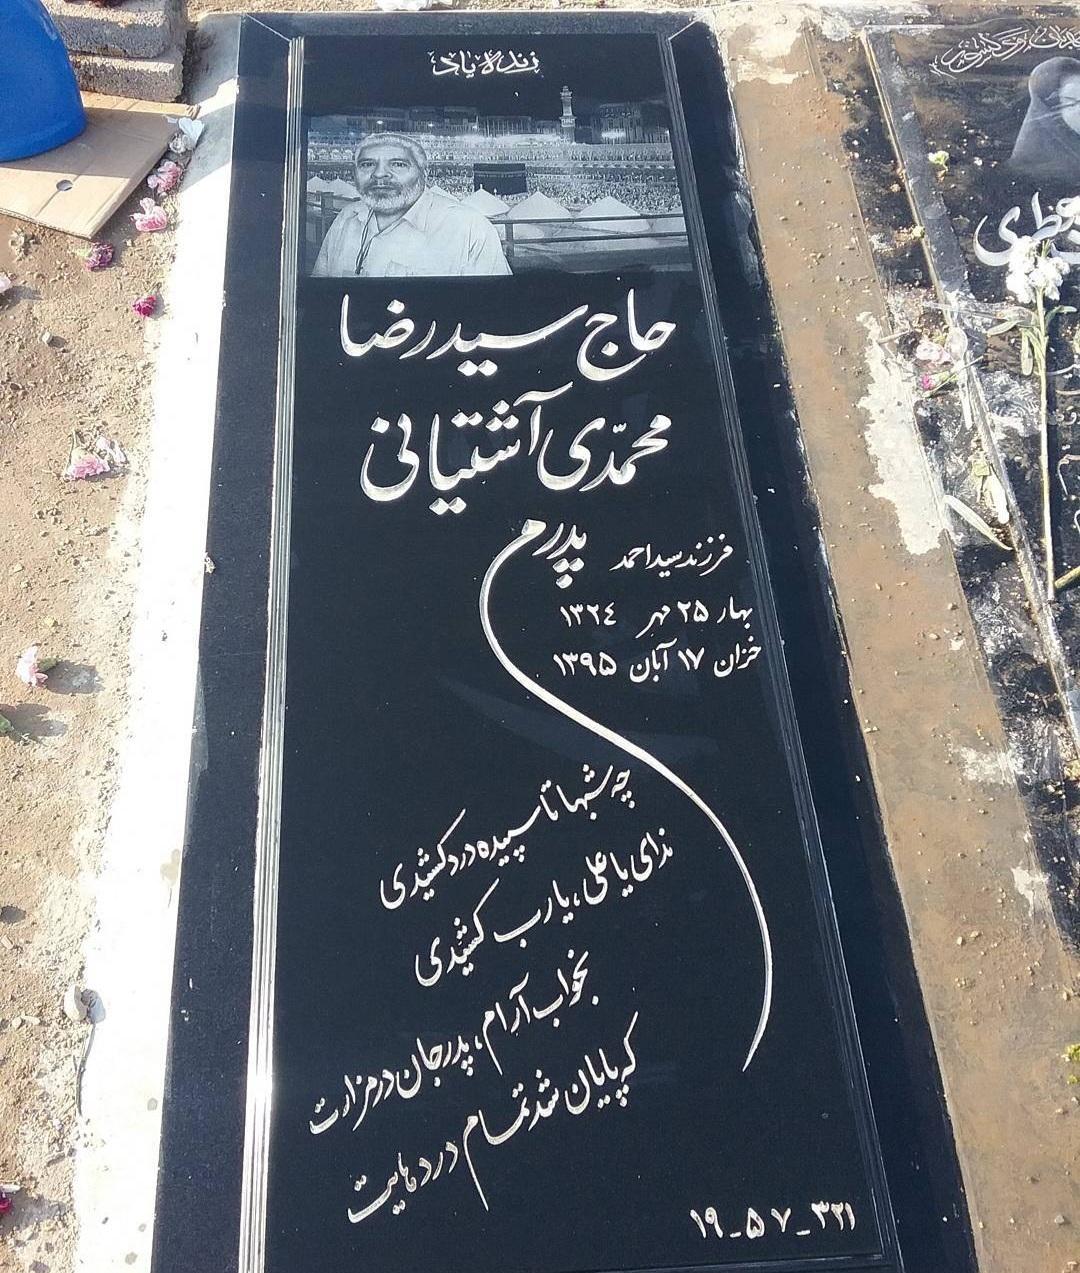 زنده یاد
حاج سید رضا
محمّدی آشتیانی
فرزند سید احمد
پدرم
بهار ۲۵ مهر ۱۳۲۴
خزان ۱۷ آبان ۱۳۹۵
چه شبها تا سپیده درد کشیدی
ندای یا علی، یا رب کشیدی
بخواب آرام، پدر جان در مزارت
که پایان شد تمام دردهایت
۳۲۱ - ۵۷ - ۱۹